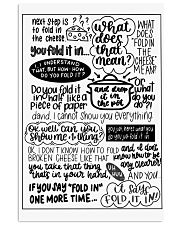 next step is to fold in the cheese
what does that mean?
WHAT DOES FOLD IN THE CHEESE MEAN
you fold it in...
I UNDERSTAND THAT, BUT HOW HOW DO YOU FOLD IT?
Do you fold it in half like a piece of paper
and drop it in the pot
or what do you do?!
david, I cannot show you everything
OK, well can you show me 1 thing?
you just... here's what you do you fold it in
OK, I DON'T KNOW HOW TO FOLD BROKEN CHEESE LIKE THAT
and I don't know how to be any clearer!
you take that thing that's in your hand,
AND YOU
IF YOU SAY "FOLD IN" ONE MORE TIME...
it says FOLD IT IN!